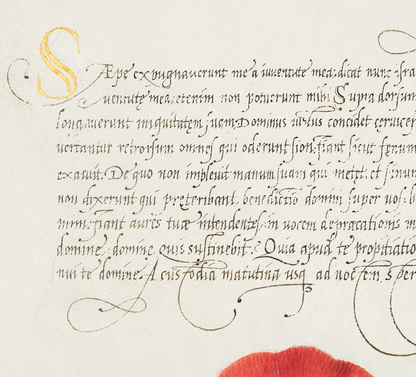 SÆpe expugnauerunt me a iuuentute mea: dicat nunc isra
uentute mea: etenim non potuerunt mihi Supra dorsum
longauerunt iniquitatem suam Dominus iustus concidet ceruices
uertantur retrorsum omnes qui oderunt sion: fiant sicut fenum
exaruit. De quo non impleuit manum suam qui mettet: et sinum
non dixerunt qui preteribant, benedictio domini super uos: b
mini: fiant aures tuæ intendentes: in uocem depræcationis m
domine, domine quis sustinebit? Quia apud te propitiatio
nuit te domine. A custodia matutina usq ad noctem, sper